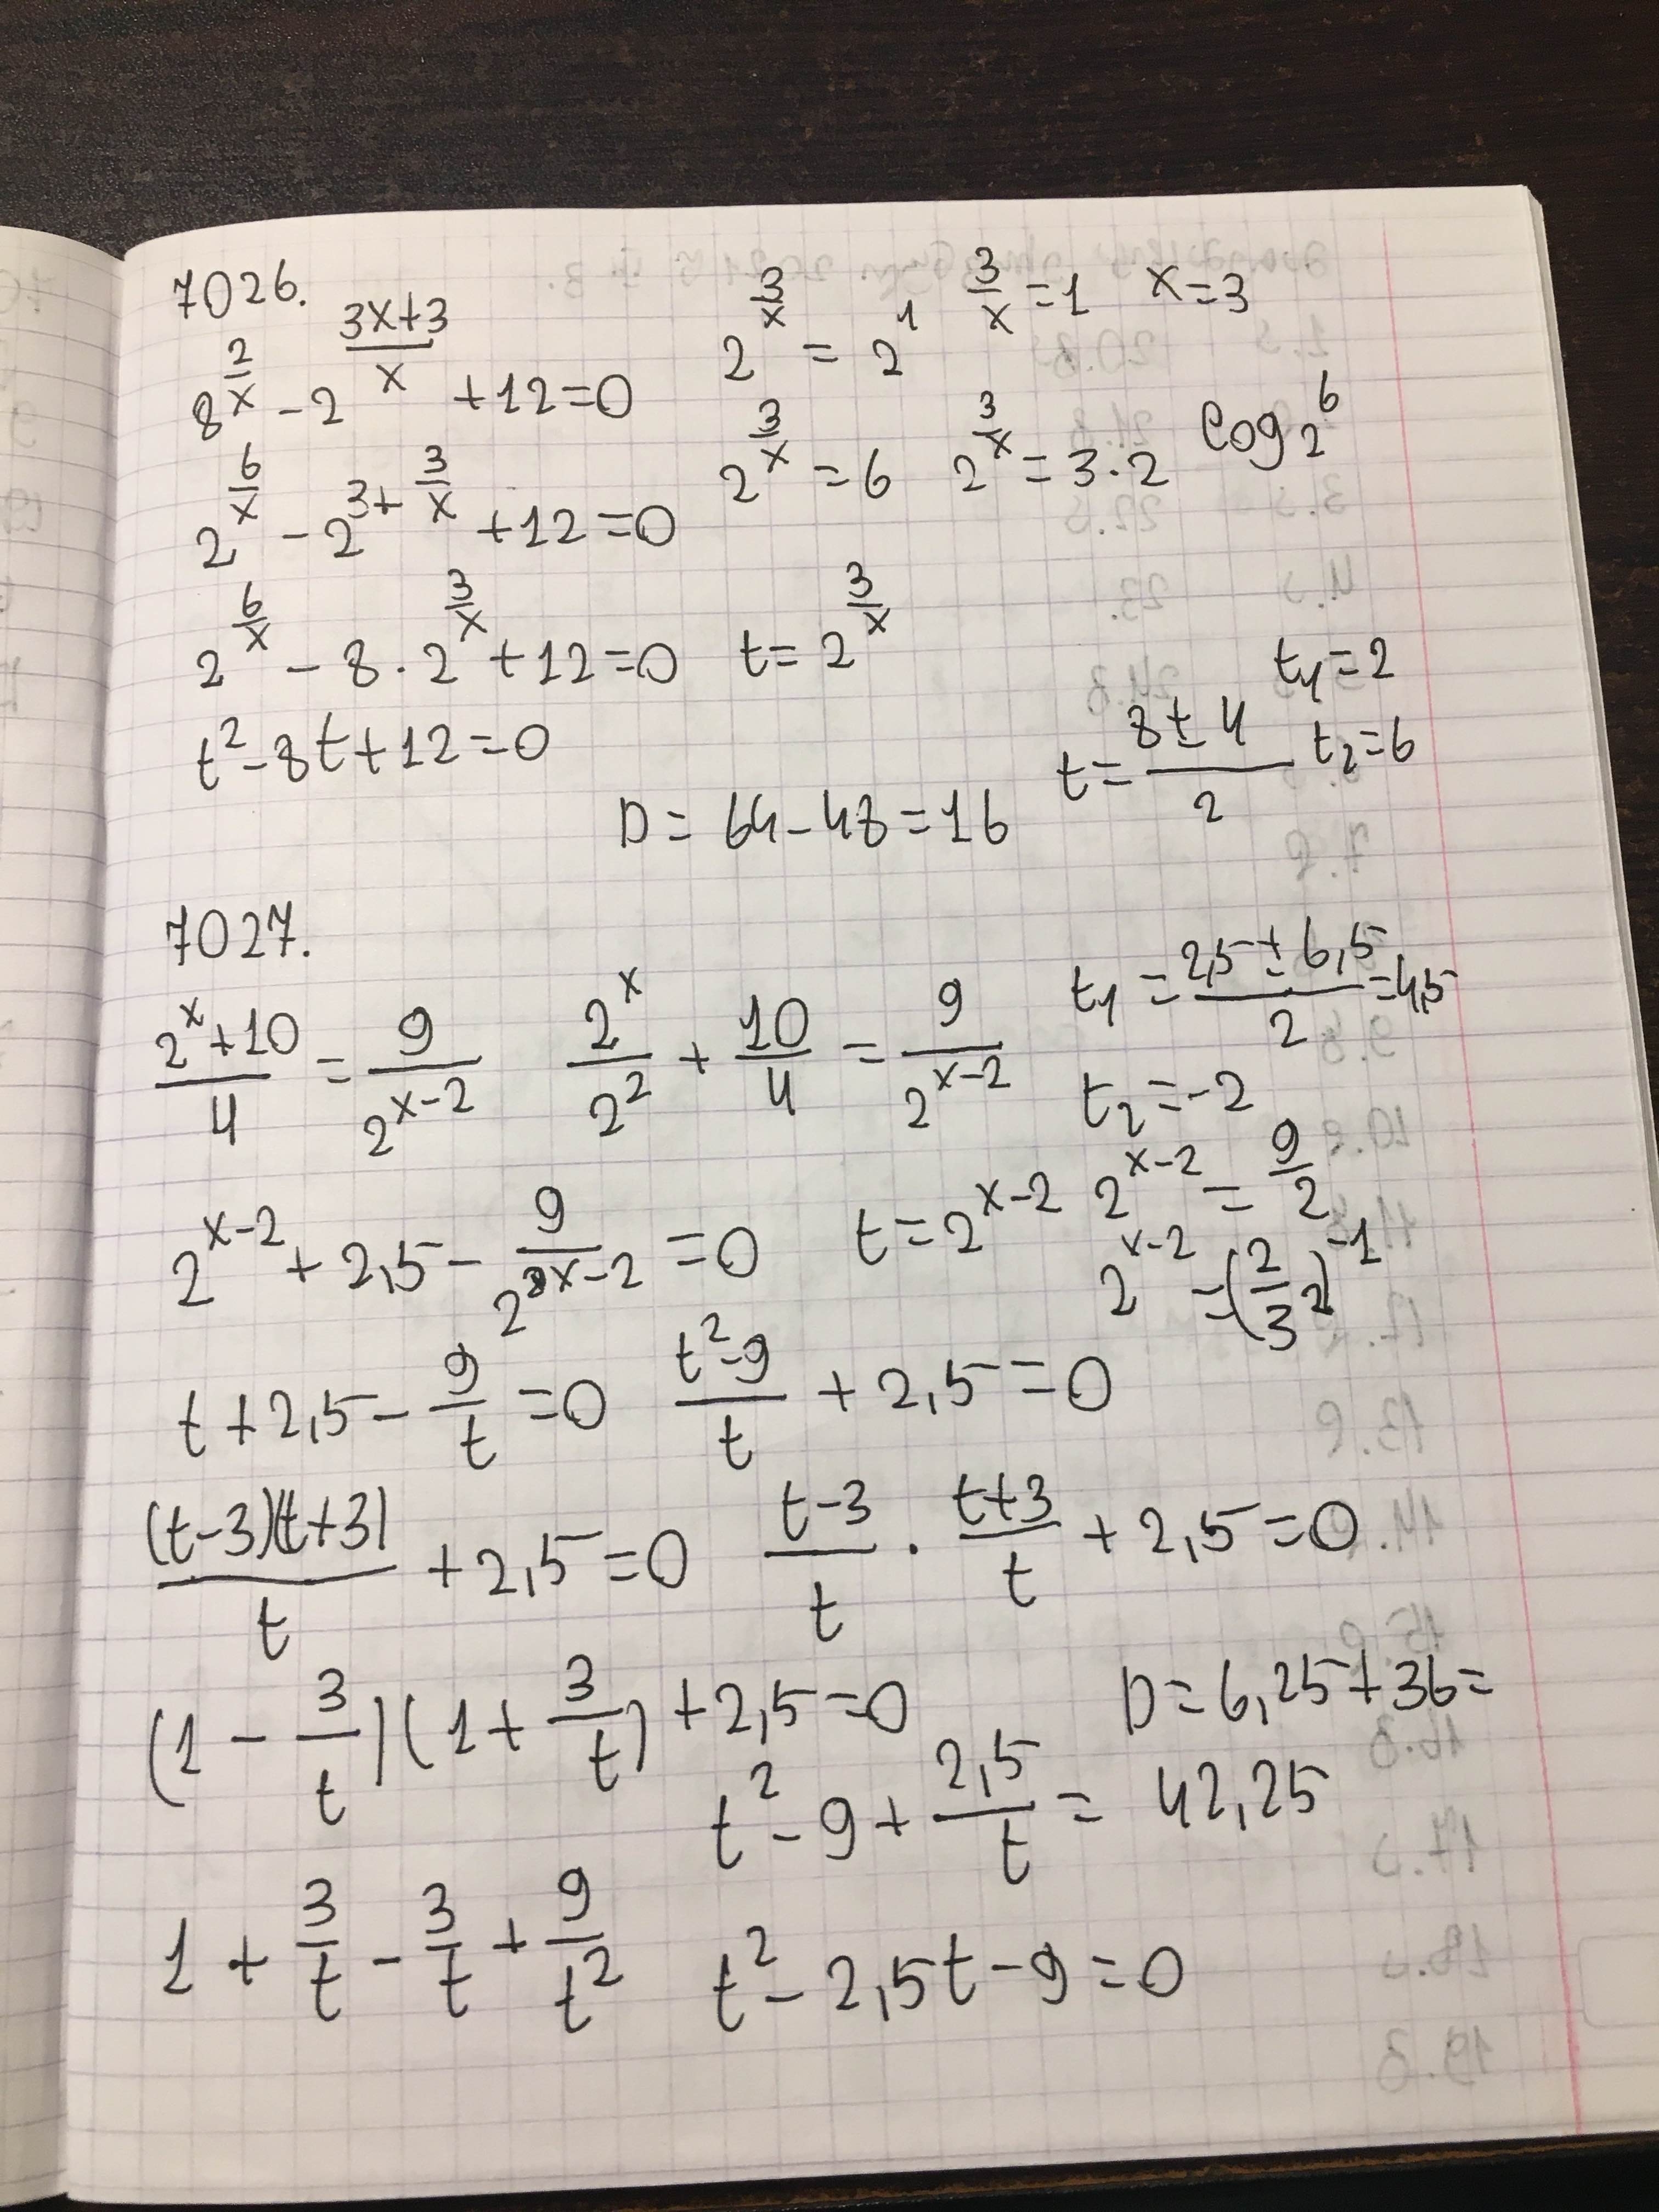 7026.
8^{2/x} - 2^{(3x+3)/x} + 12 = 0
2^{6/x} - 2^{3+3/x} + 12 = 0
2^{6/x} - 8 · 2^{3/x} + 12 = 0   t = 2^{3/x}
t² - 8t + 12 = 0
D = 64 - 48 = 16
t = (8 ± 4)/2   t₁ = 2
t₂ = 6
2^{3/x} = 2^1   3/x = 1   x = 3
2^{3/x} = 6   2^{3/x} = 3 · 2   log₂6
7027.
(2^x + 10)/4 = 9/2^{x-2}   2^x/2² + 10/4 = 9/2^{x-2}
2^{x-2} + 2,5 - 9/2^{x-2} = 0   t = 2^{x-2}
t + 2,5 - 9/t = 0   (t² - 9)/t + 2,5 = 0
(t-3)(t+3)/t + 2,5 = 0   (t-3)/t · (t+3)/t + 2,5 = 0
(1 - 3/t)(1 + 3/t) + 2,5 = 0
1 + 3/t - 3/t + 9/t²
t² - 9 + 2,5/t =
t² - 2,5t - 9 = 0
D = 6,25 + 36 =
42,25
t₁ = (2,5 ± 6,5)/2 = 4,5
t₂ = -2
2^{x-2} = 9/2
2^{x-2} = (2/3²)^{-1}